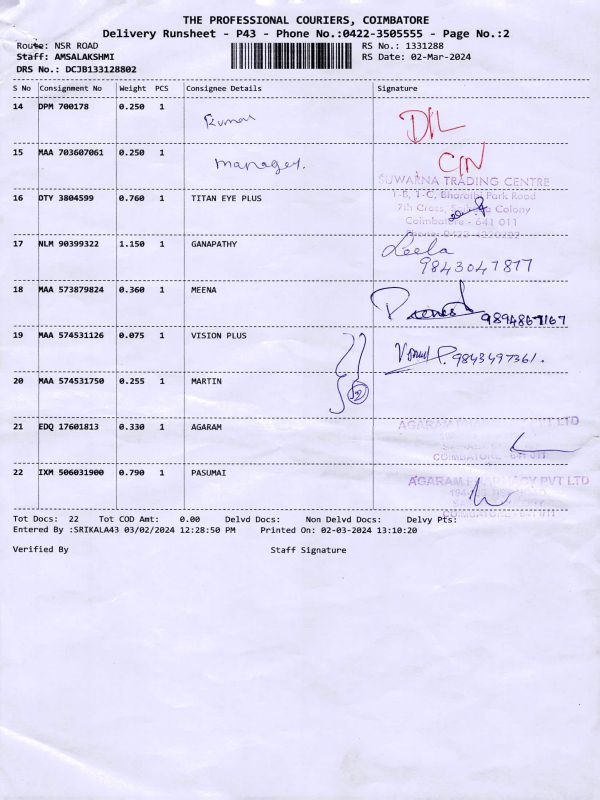 THE PROFESSIONAL COURIERS, COIMBATORE
Delivery Runsheet - P43 - Phone No.:0422-3505555 - Page No.:2
Route: NSR ROAD RS No.: 1331288
Staff: AMSALAKSHMI RS Date: 02-Mar-2024
DRS No.: DCJB133128802
S No Consignment No Weight PCS Consignee Details Signature
14 DPM 700178 0.250 1 Kumar D/L
15 MAA 703607061 0.250 1 manager. C/N
SUWARNA TRADING CENTRE
1-B, 1-C, Bharathi Park Road
16 DTY 3804599 0.760 1 TITAN EYE PLUS
7th Cross, Colony
Coimbatore - 641 011
17 NLM 90399322 1.150 1 GANAPATHY Leela
9843047877
18 MAA 573879824 0.360 1 MEENA 9894867167
19 MAA 574531126 0.075 1 VISION PLUS 9843497361.
20 MAA 574531750 0.255 1 MARTIN
21 EDQ 17601813 0.330 1 AGARAM AGARAM PVT LTD
COIMBATORE - 641 011
22 IXM 506031900 0.790 1 PASUMAI AGARAM PHARMACY PVT LTD
COIMBATORE - 641 011
Tot Docs: 22 Tot COD Amt: 0.00 Delvd Docs: Non Delvd Docs: Delvy Pts:
Entered By :SRIKALA43 03/02/2024 12:28:50 PM Printed On: 02-03-2024 13:10:20
Verified By Staff Signature